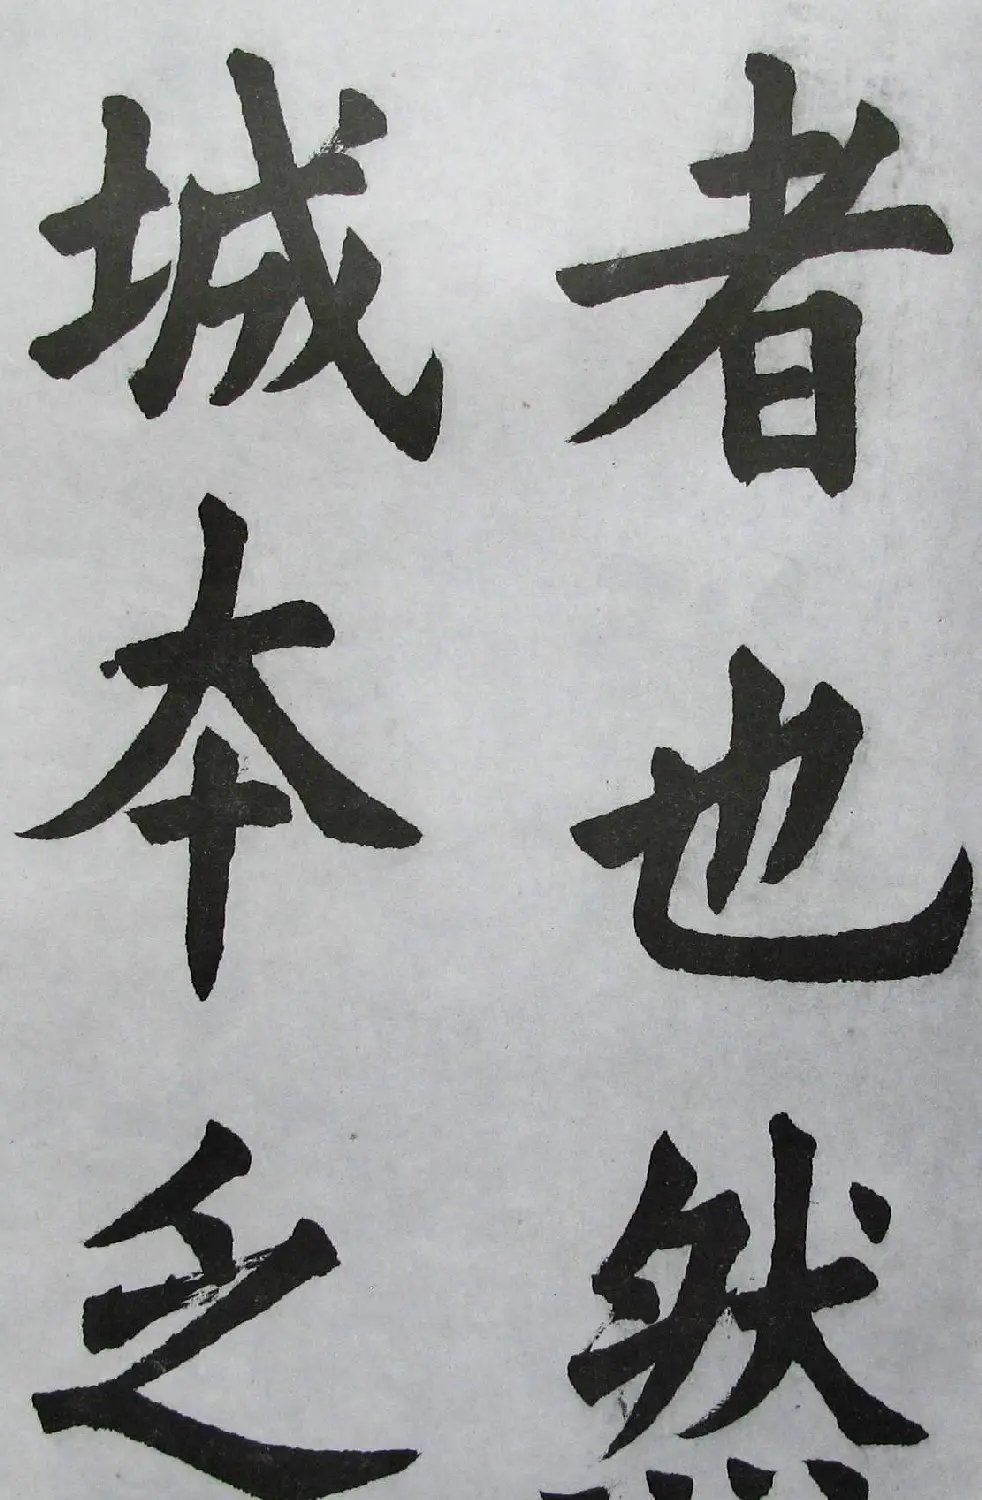 者也然
城本乏